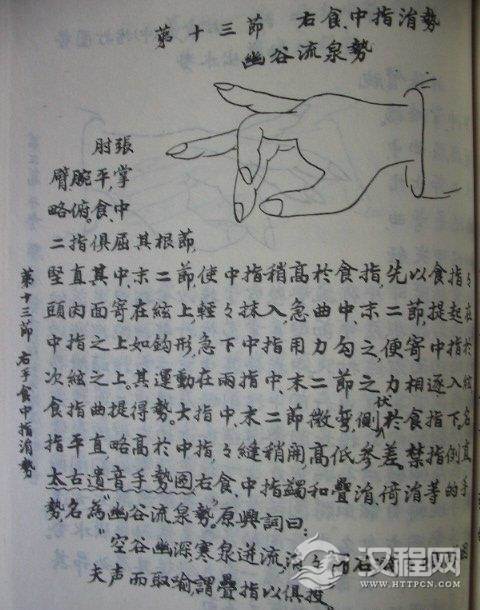 第十三節 右食、中指涓勢
幽谷流泉勢
肘張
臂腕平,掌
略俯。食中
二指俱屈其根節,
堅直其中、末二節,使中指稍高於食指,先以食指
頭肉面寄在絃上,輕々抹入,急曲中、末二節,提起在
中指之上如鈎形,急下中指用力勾之,便寄中指於
次絃之上。其運動在兩指中末二節之力相逐入絃
食指曲提得勢。大指中、末二節微彎,側伏於食指下。名
指平直略高於中指,々縫稍開,高低參差。禁指倒直
太古遺音手勢圖右食、中指蠲和疊涓、倚涓等的手
勢名為“幽谷流泉勢”。原興詞曰:
“空谷幽深寒泉迸流
夫声而取喻,謂疊指以俱拨
第十三節 右手食中指涓勢
汉程网
HTTPCN.COM